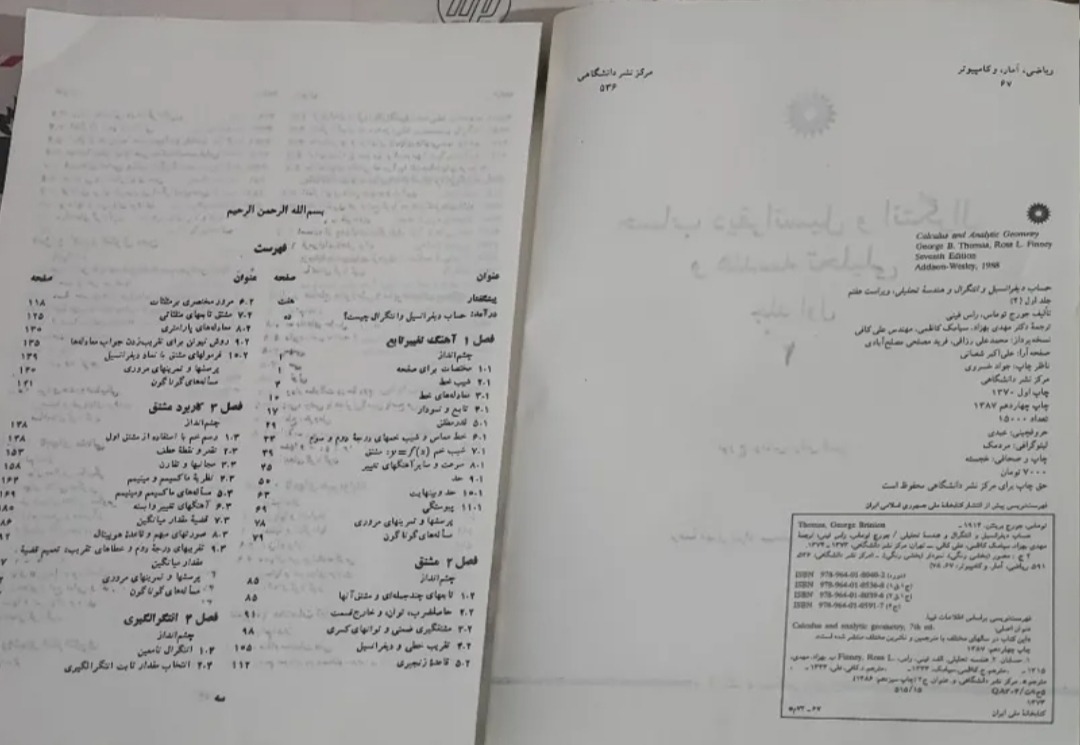 ریاضی، آمار، و کامپیوتر
۶۷
مرکز نشر دانشگاهی
۵۳۶
Calculus and Analytic Geometry
George B. Thomas, Ross L. Finney
Seventh Edition
Addison-Wesley, 1988
حساب دیفرانسیل و انتگرال و هندسهٔ تحلیلی، ویراست هفتم
جلد اول (۲)
تألیف جورج توماس، راس فینی
ترجمهٔ دکتر مهدی بهزاد، سیامک کاظمی، مهندس علی کافی
نسخه‌پرداز: محمدعلی رزاقی، فرید مصلحی مصلح‌آبادی
صفحه‌آرا: علی‌اکبر شعبانی
ناظر چاپ: جواد خسروی
مرکز نشر دانشگاهی
چاپ اول ۱۳۷۰
چاپ چهاردهم ۱۳۸۷
تعداد ۱۵۰۰۰
حروفچینی: عبدی
لیتوگرافی: مردمک
چاپ و صحافی: خجسته
۷۰۰۰ تومان
حق چاپ برای مرکز نشر دانشگاهی محفوظ است
فهرست‌نویسی پیش از انتشار کتابخانهٔ ملی جمهوری اسلامی ایران
توماس، جورج برینتن، ۱۹۱۴ - Thomas, George Brinton
حساب دیفرانسیل و انتگرال و هندسهٔ تحلیلی / جورج توماس، راس فینی؛ ترجمهٔ
مهدی بهزاد، سیامک کاظمی، علی کافی. ــ تهران: مرکز نشر دانشگاهی،
ISBN 978-964-01-8040-3
ISBN 978-964-01-0536-8
ISBN 978-964-01-8039-8
ISBN 978-964-01-0591-7
فهرستنویسی براساس اطلاعات فیپا.
عنوان اصلی: Calculus and analytic geometry, 7th ed.
چاپ چهاردهم: ۱۳۸۷
۵۱۵/۱۵
کتابخانهٔ ملی ایران
بسم‌الله الرحمن الرحیم
فهرست
عنوان صفحه
پیشگفتار هفت
درآمد: حساب دیفرانسیل و انتگرال چیست؟ ده
فصل ۱ آهنگ تغییر تابع
چشم‌انداز ۱
۱.۱ مختصات برای صفحه ۱
۲.۱ شیب خط ۴
۳.۱ معادله‌های خط ۱۰
۴.۱ تابع و نمودار ۱۷
۵.۱ قدرمطلق ۲۹
۶.۱ خط مماس و شیب خمهای درجهٔ دوم و سوم ۳۳
۷.۱ شیب خم y = f(x)؛ مشتق ۳۹
۸.۱ سرعت و سایر آهنگهای تغییر ۴۵
۹.۱ حد ۵۰
۱۰.۱ حد و بینهایت ۶۳
۱۱.۱ پیوستگی ۶۹
پرسشها و تمرینهای مروری ۷۸
مسأله‌های گوناگون ۷۹
فصل ۲ مشتق
چشم‌انداز ۸۵
۱.۲ تابعهای چندجمله‌ای و مشتق آنها ۸۵
۲.۲ حاصلضرب، توان، و خارج‌قسمت ۹۱
۳.۲ مشتقگیری ضمنی و توانهای کسری ۹۸
۴.۲ تقریب خطی و دیفرانسیل ۱۰۵
۵.۲ قاعدهٔ زنجیری ۱۱۲
عنوان صفحه
۶.۲ مرور مختصری بر مثلثات ۱۱۸
۷.۲ مشتق تابعهای مثلثاتی ۱۲۵
۸.۲ معادله‌های پارامتری ۱۳۰
۹.۲ روش نیوتن برای تقریب‌زدن جواب معادله‌ها ۱۳۵
۱۰.۲ فرمولهای مشتق با نماد دیفرانسیل ۱۳۹
پرسشها و تمرینهای مروری ۱۴۰
مسأله‌های گوناگون ۱۴۱
فصل ۳ کاربرد مشتق
چشم‌انداز ۱۴۸
۱.۳ رسم خم با استفاده از مشتق اول ۱۴۸
۲.۳ تقعر و نقطهٔ عطف ۱۵۳
۳.۳ مجانبها و تقارن ۱۵۸
۴.۳ نظریهٔ ماکسیمم و مینیمم
۵.۳ مسأله‌های ماکسیمم و مینیمم ۱۶۹
۶.۳ آهنگهای تغییر وابسته
۷.۳ قضیهٔ مقدار میانگین
۸.۳ صورتهای مبهم و قاعدهٔ هوپیتال
۹.۳ تقریبهای درجهٔ دوم و خطاهای تقریب: تعمیم قضیهٔ
مقدار میانگین
پرسشها و تمرینهای مروری
مسأله‌های گوناگون
فصل ۴ انتگرالگیری
چشم‌انداز
۱.۴ انتگرال نامعین
۲.۴ انتخاب مقدار ثابت انتگرالگیری
سه